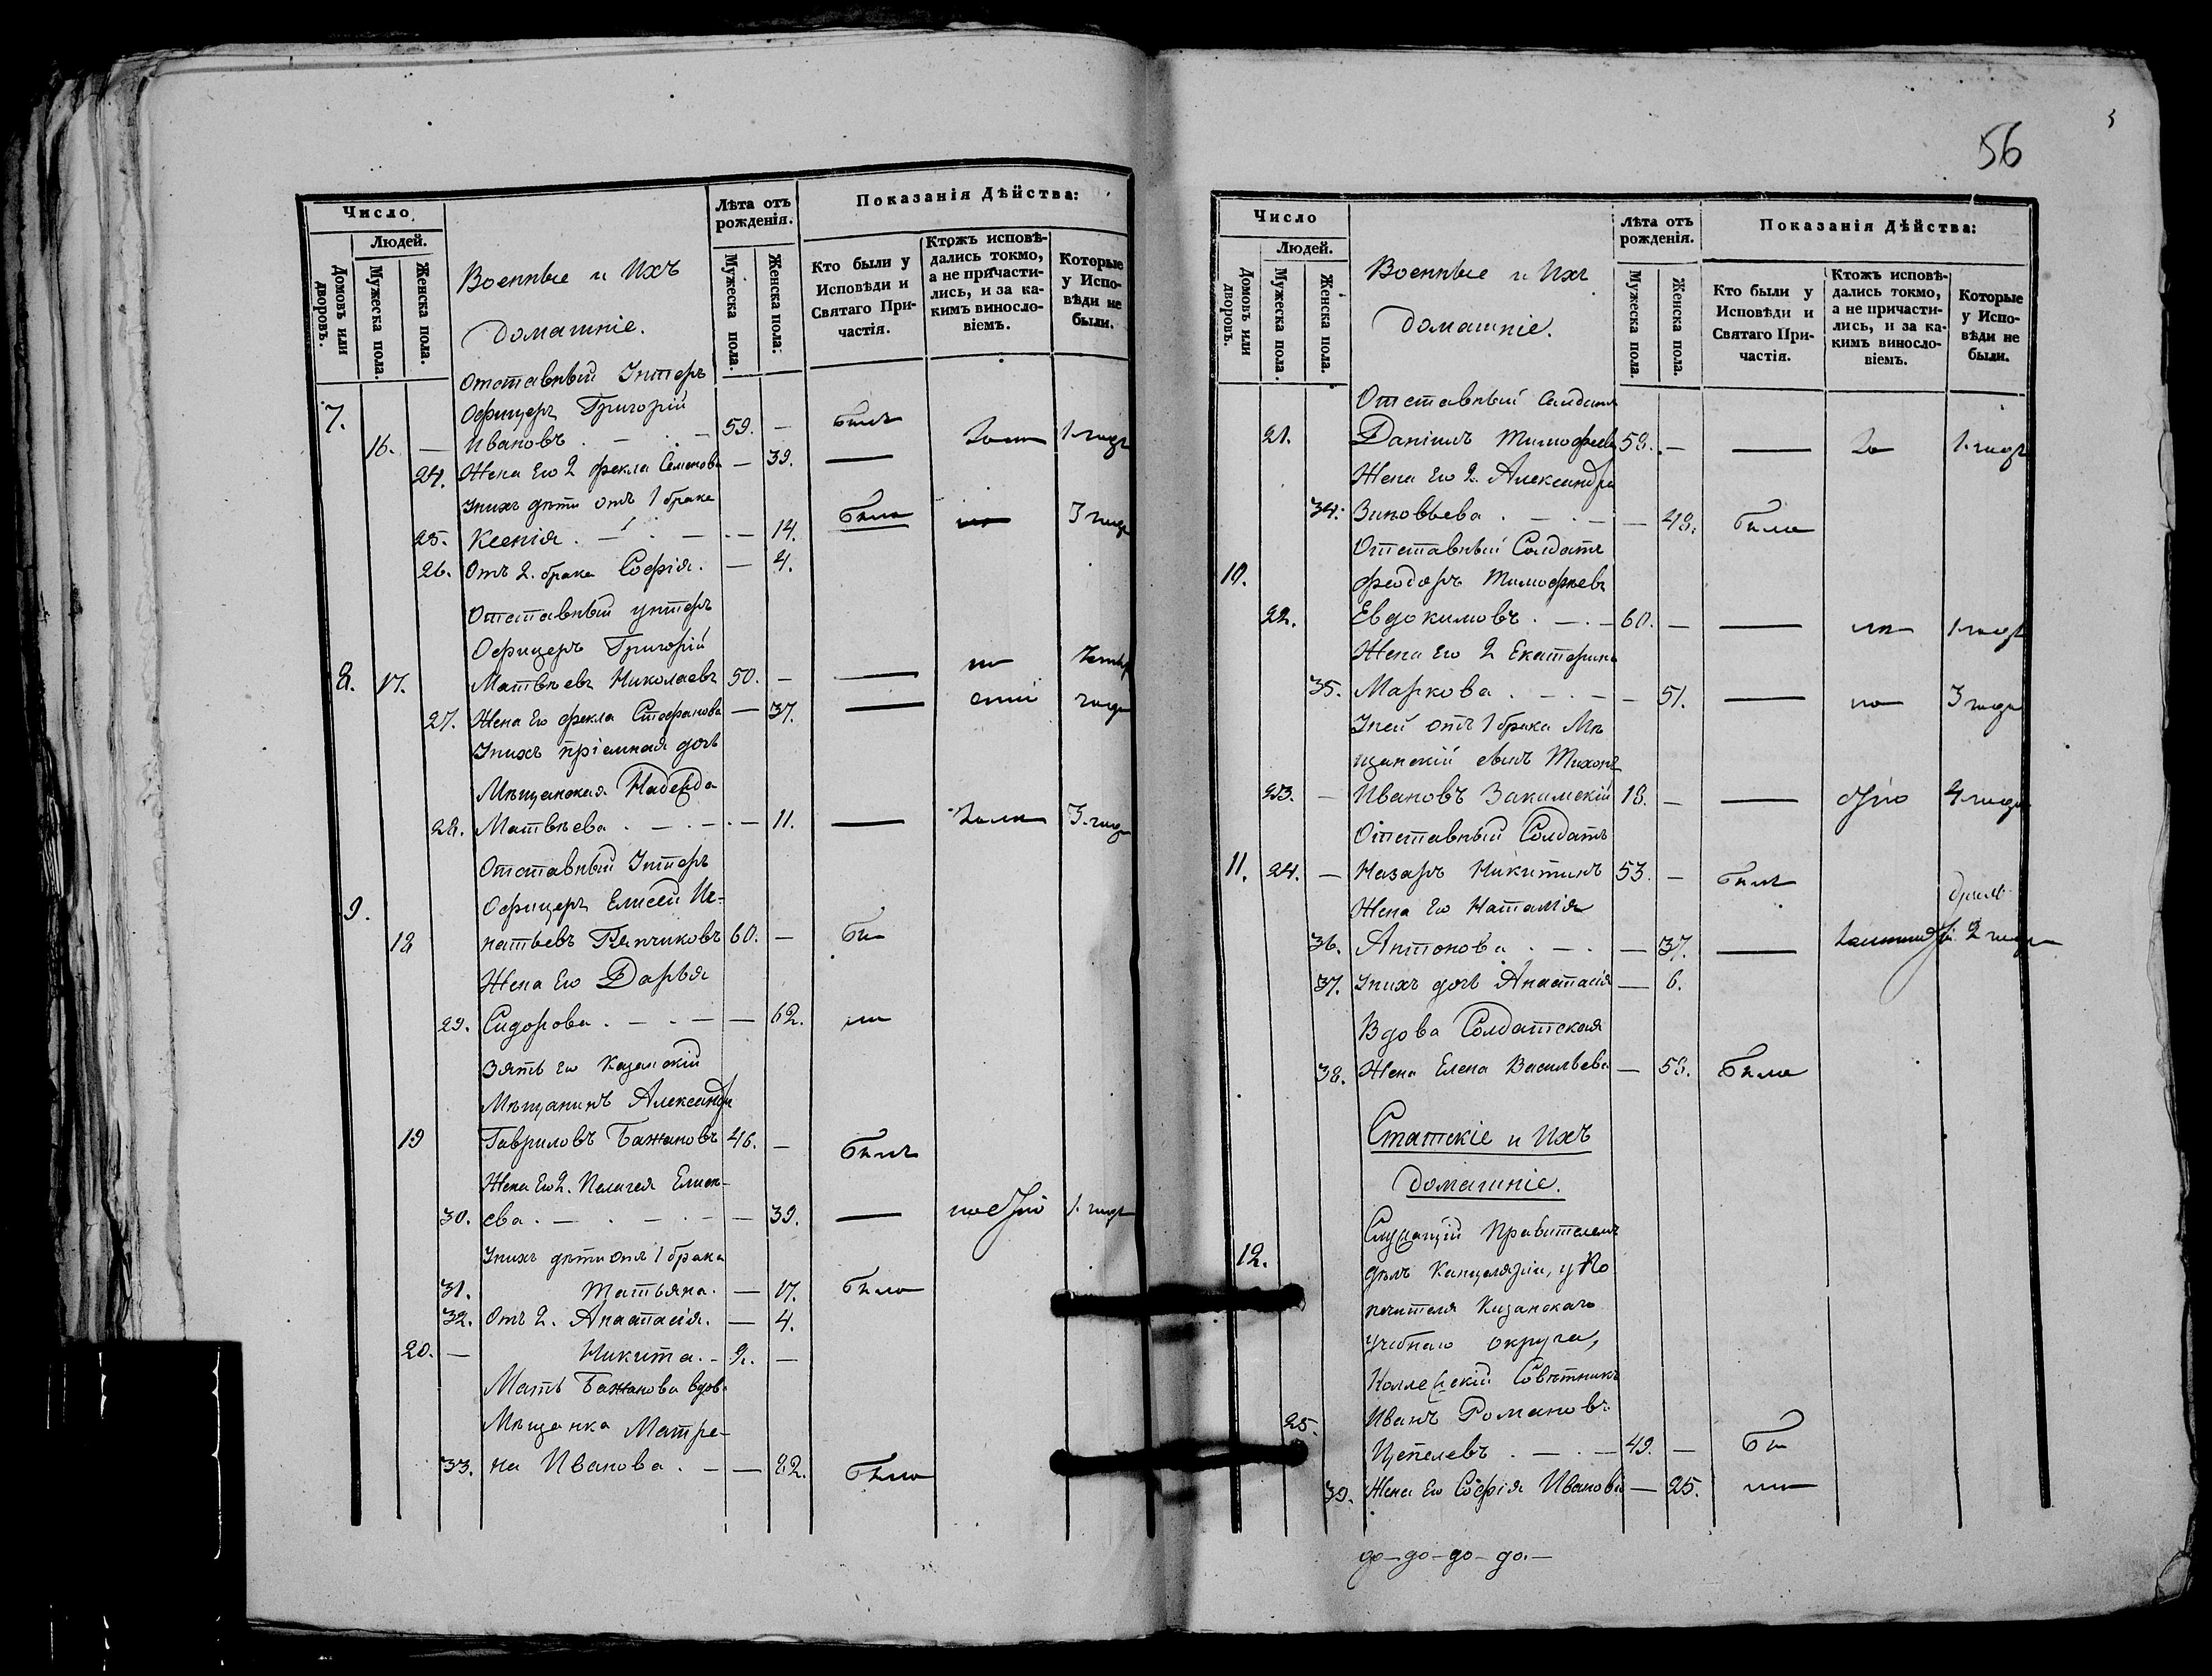 56
Число
Людей.
Домовъ или дворовъ.
Мужеска пола.
Женска пола.
Военные и Ихъ
домашніе.
Лѣта отъ рожденія.
Мужеска пола.
Женска пола.
Показанія Дѣйства:
Кто были у Исповѣди и Святаго Причастія.
Ктожъ исповѣдались токмо, а не причастились, и за какимъ винословіемъ.
Которые у Исповѣди не были.
Отставный Унтеръ
7. Офицеръ Григорій былъ
16. — Ивановъ . — . — 59. — 1. годъ
24. Жена Его 2 Фекла Семенова — 39. —
У нихъ дѣти отъ 1 брака
25. Ксенія . — . — — 14. была 3 года
26. Отъ 2. брака Софія. — 4.
Отставный унтеръ
Офицеръ Григорій
8. 17. Матвѣевъ Николаевъ 50. — —
27. Жена Его Фекла Стефанова — 37. — года
У нихъ пріемная дочь
Мѣщанская Надежда
28. Матвѣева . — . — — 11. — 3. года
Отставный Унтеръ
9. Офицеръ Елисей Иг-
18 натьевъ 60. —
Жена Его Дарья
29. Сидорова . — . — — 62.
Зять его Казанскій
Мѣщанинъ Александръ
19 Гавриловъ Бажановъ 46. — былъ
Жена Его 2. Пелагея Елисе-
30. ева . — . — . — — 39. — 1. годъ
У нихъ дѣти отъ 1 брака
31. Татьяна. — 17. была
32. Отъ 2. Анастасія. — 4.
20. — Никита. — 2. —
Мать Бажанова вдова
Мѣщанка Матре-
33. на Иванова . — — 82. была
Число
Людей.
Домовъ или дворовъ.
Мужеска пола.
Женска пола.
Военные и Ихъ
домашніе.
Лѣта отъ рожденія.
Мужеска пола.
Женска пола.
Показанія Дѣйства:
Кто были у Исповѣди и Святаго Причастія.
Ктожъ исповѣдались токмо, а не причастились, и за какимъ винословіемъ.
Которые у Исповѣди не были.
Отставный Солдатъ
21. Даніилъ Тимофеевъ 58. — — 1. годъ
Жена Его 2. Александра
34. Зиновьева . — . — — 48. была
Отставный Солдатъ
10. Феодоръ Тимофѣевъ
22. Евдокимовъ . — . — 60. — — 1 годъ
Жена Его 2 Екатерина
35. Маркова . — . — — 51. — 3 года
У ней отъ 1 брака Мѣ
щанскій сынъ Тихонъ
23. — Ивановъ Закамскій 18. — — 4 года
Отставный Солдатъ
11. 24. — Назаръ Никитинъ 53. — былъ
Жена Его Наталія
36. Антонова . — . — 37. — 2 года
37. У нихъ дочь Анастасія — 6.
Вдова Солдатская
38. Жена Елена Васильева — 58. была
Статскіе и Ихъ
домашніе.
Служащій Правителемъ
12. дѣлъ Канцеляріи, у По
печителя Казанскаго
учебнаго округа,
Коллежскій Совѣтникъ
25. Иванъ Романовъ
Цепелевъ . — . — 49. —
39. Жена Его Софія Иванова — 25.
до — до — до — до. —